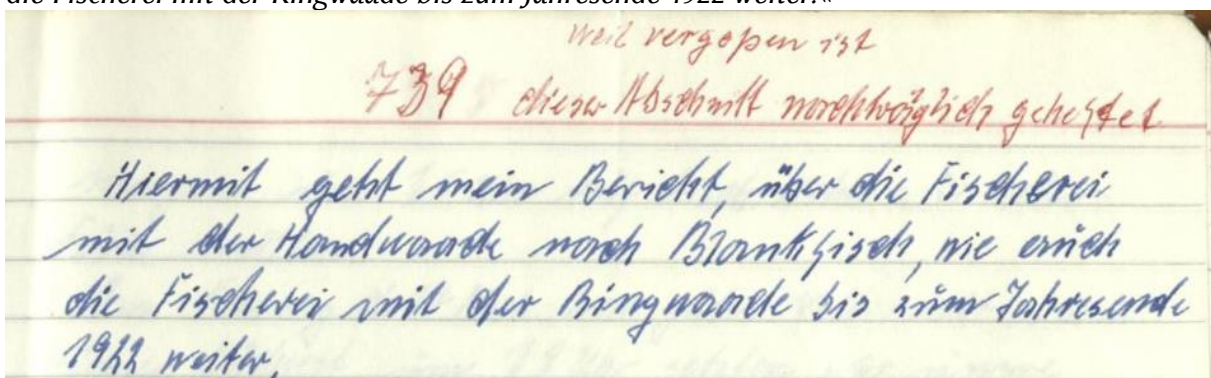 die Fischerei mit der Ringwaade bis zum Jahresende 1922 weiter.«
weil vergeßen ist
739 dieser Abschnitt nachträglich geheftet
Hiermit geht mein Bericht, über die Fischerei
mit der Handwaade nach Blankfisch, wie auch
die Fischerei mit der Ringwaade bis zum Jahresende
1922 weiter,